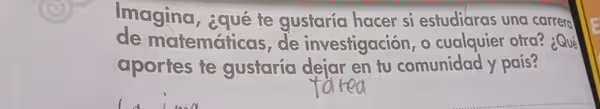 Imagina, ¿qué te gustaría hacer si estudiaras una carrera
de matemáticas, de investigación, o cualquier otra? ¿Qué
aportes te gustaría dejar en tu comunidad y país?
tarea